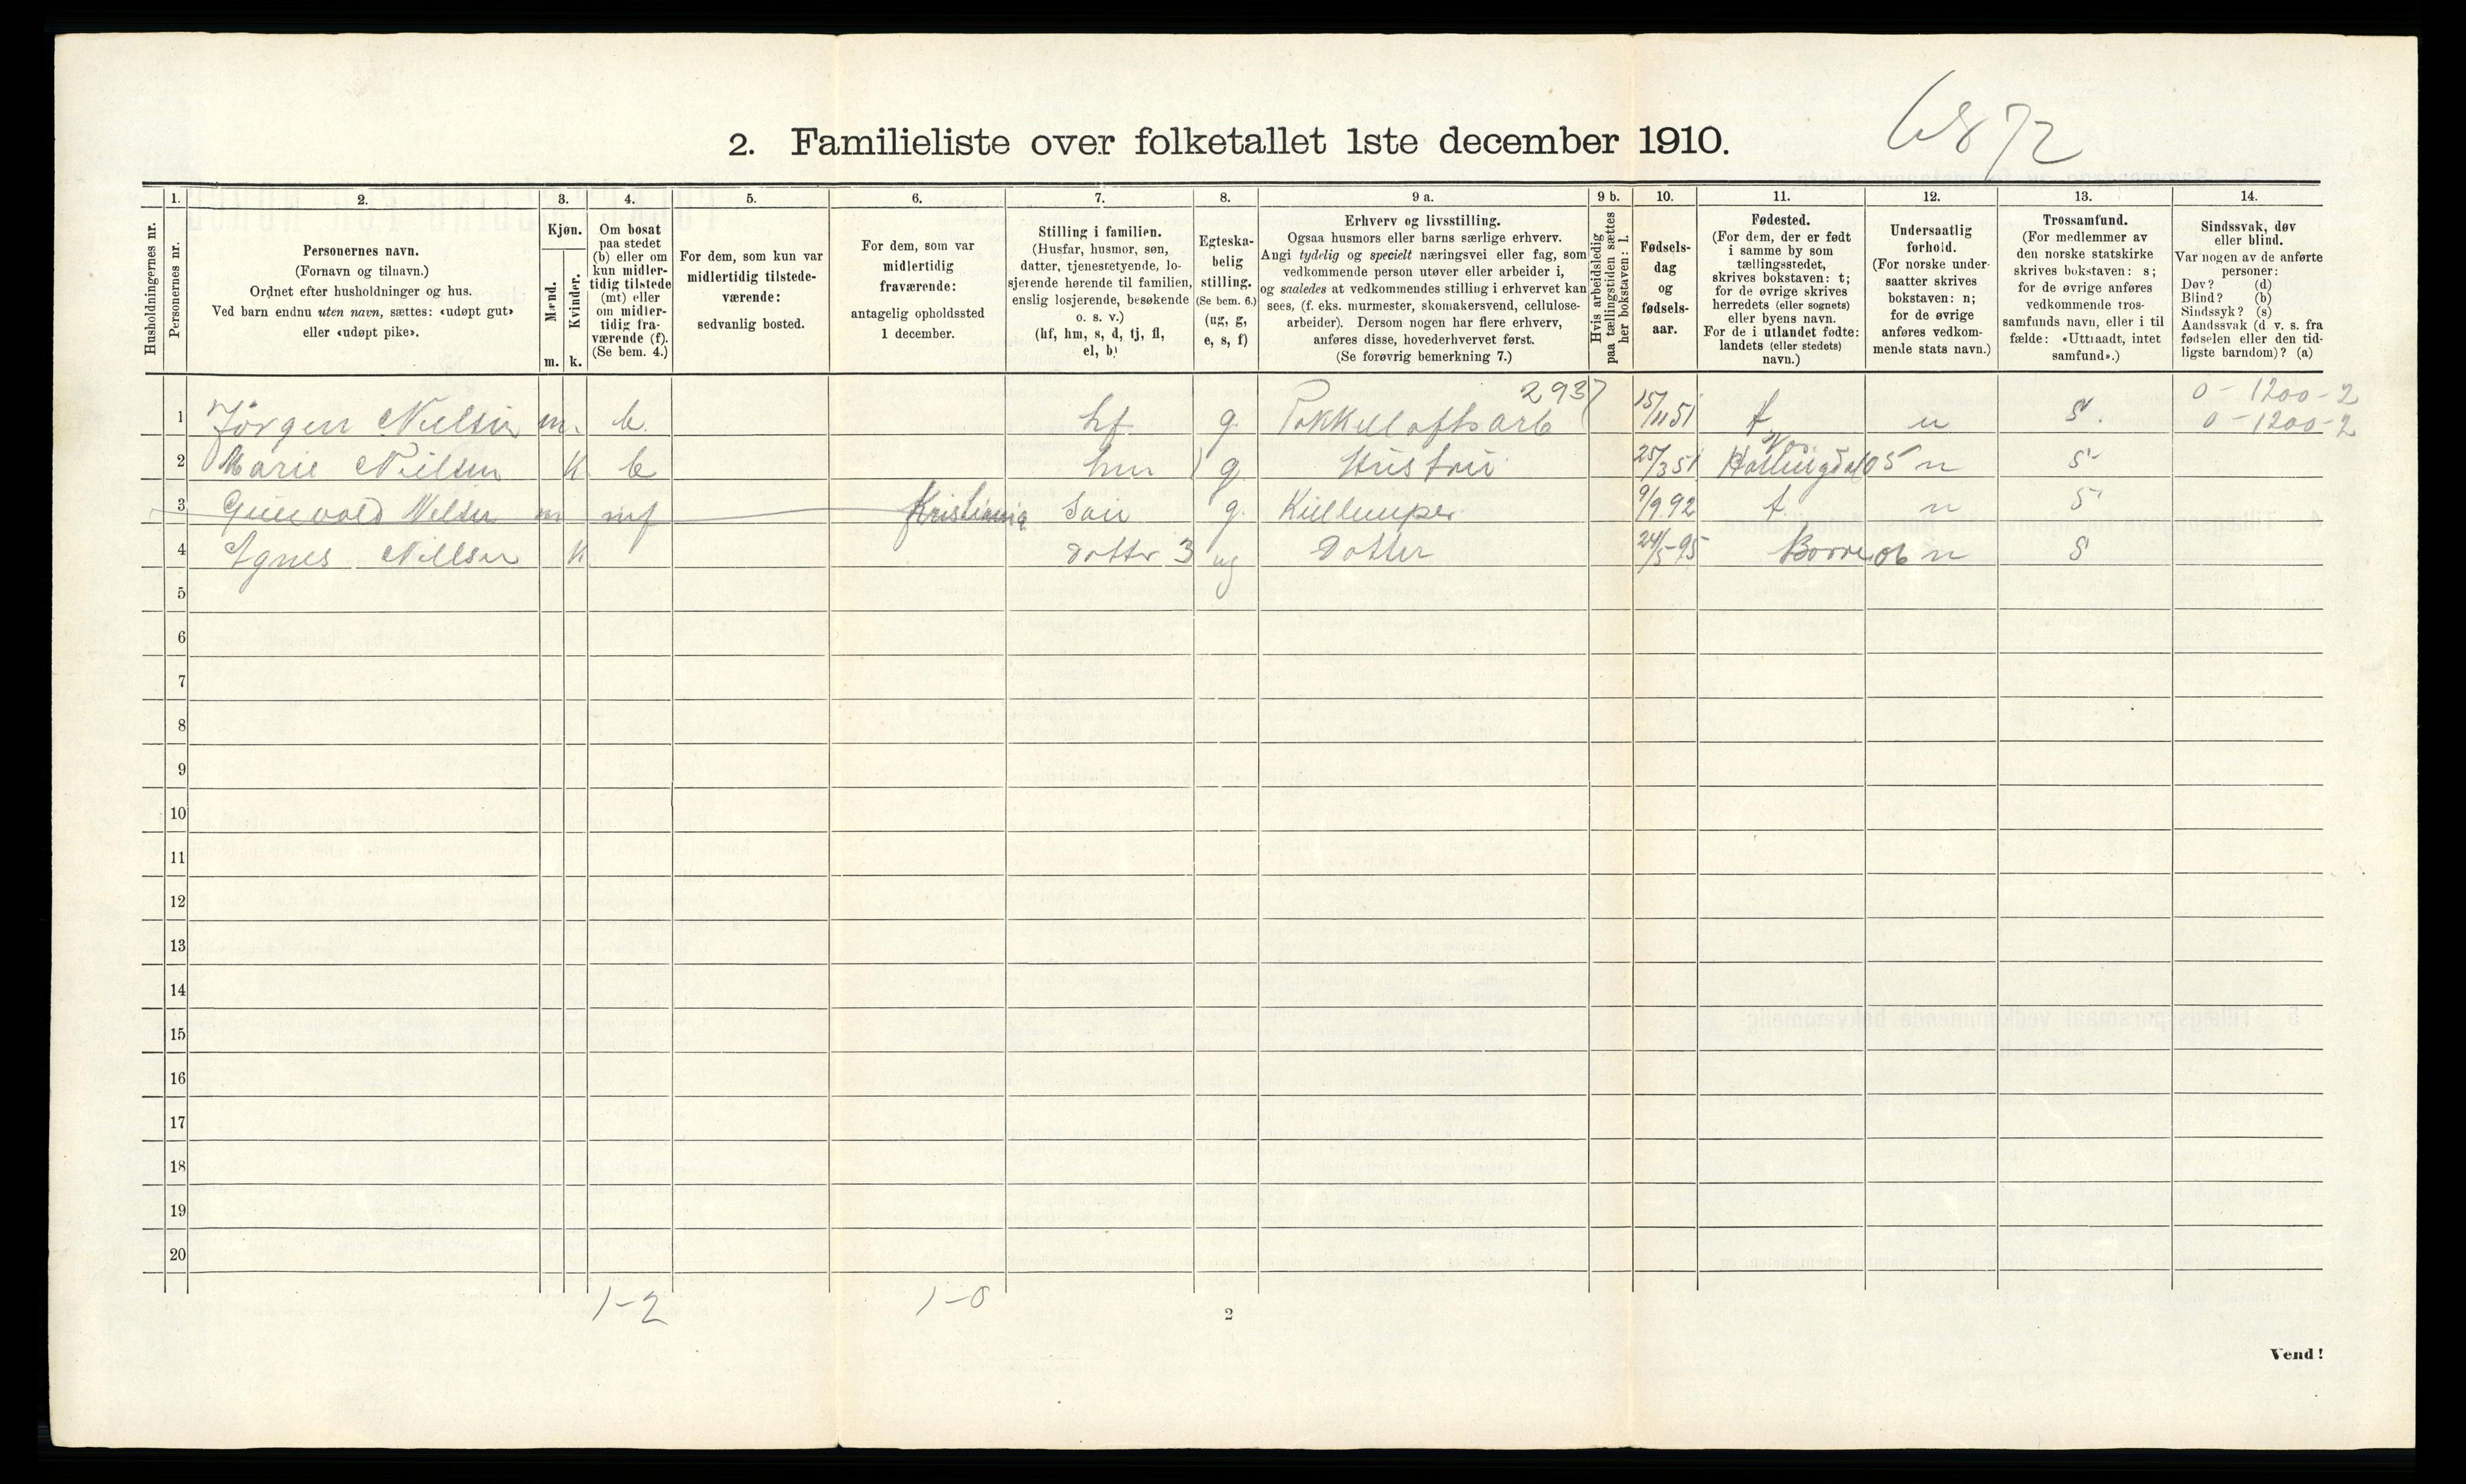 6872
2. Familieliste over folketallet 1ste december 1910.
Husholdningernes nr.
1.
Personernes nr.
2.
Personernes navn.
(Fornavn og tilnavn.)
Ordnet efter husholdninger og hus.
Ved barn endnu uten navn, sættes: «udøpt gut»
eller «udøpt pike».
3.
Kjøn.
Mænd.
Kvinder.
m. k.
4.
Om bosat
paa stedet
(b) eller om
kun midler-
tidig tilstede
(mt) eller
om midler-
tidig fra-
værende (f).
(Se bem. 4.)
5.
For dem, som kun var
midlertidig tilstede-
værende:
sedvanlig bosted.
6.
For dem, som var
midlertidig
fraværende:
antagelig opholdssted
1 december.
7.
Stilling i familien.
(Husfar, husmor, søn,
datter, tjenestetyende, lo-
sjerende hørende til familien,
enslig losjerende, besøkende
o. s. v.)
(hf, hm, s, d, tj, fl,
el, b)
8.
Egteska-
belig
stilling.
(Se bem. 6.)
(ug, g,
e, s, f)
9 a.
Erhverv og livsstilling.
Ogsaa husmors eller barns særlige erhverv.
Angi tydelig og specielt næringsvei eller fag, som
vedkommende person utøver eller arbeider i,
og saaledes at vedkommendes stilling i erhvervet kan
sees, (f. eks. murmester, skomakersvend, cellulose-
arbeider). Dersom nogen har flere erhverv,
anføres disse, hovederhvervet først.
(Se forøvrig bemerkning 7.)
9 b.
Hvis arbeidsledig
paa tællingstiden sættes
her bokstaven: l.
10.
Fødsels-
dag
og
fødsels-
aar.
11.
Fødested.
(For dem, der er født
i samme by som
tællingsstedet,
skrives bokstaven: t;
for de øvrige skrives
herredets (eller sognets)
eller byens navn.
For de i utlandet fødte:
landets (eller stedets)
navn.)
12.
Undersaatlig
forhold.
(For norske under-
saatter skrives
bokstaven: n;
for de øvrige
anføres vedkom-
mende stats navn.)
13.
Trossamfund.
(For medlemmer av
den norske statskirke
skrives bokstaven: s;
for de øvrige anføres
vedkommende tros-
samfunds navn, eller i til
fælde: «Uttraadt, intet
samfund».)
14.
Sindssvak, døv
eller blind.
Var nogen av de anførte
personer:
Døv? (d)
Blind? (b)
Sindssyk? (s)
Aandssvak (d v. s. fra
fødselen eller den tid-
ligste barndom)? (a)
2937 0-1200-2
1 Jörgen Nielsen m. b. hf g. 15/11 51 t n S. 0-1200-2
2 Marie Nielsen K b hm g. Hustru 25/3 51 Hallingdal 05 n S
3 Nielsen m mf Kristiania Sön g. 9/9 92 t n S
4 Agnes Nielsen K Datter 3 ug Datter 24/5-95 Borre 06 n S
5
6
7
8
9
10
11
12
13
14
15
16
17
18
19
20
1-2 1-0
2
Vend!